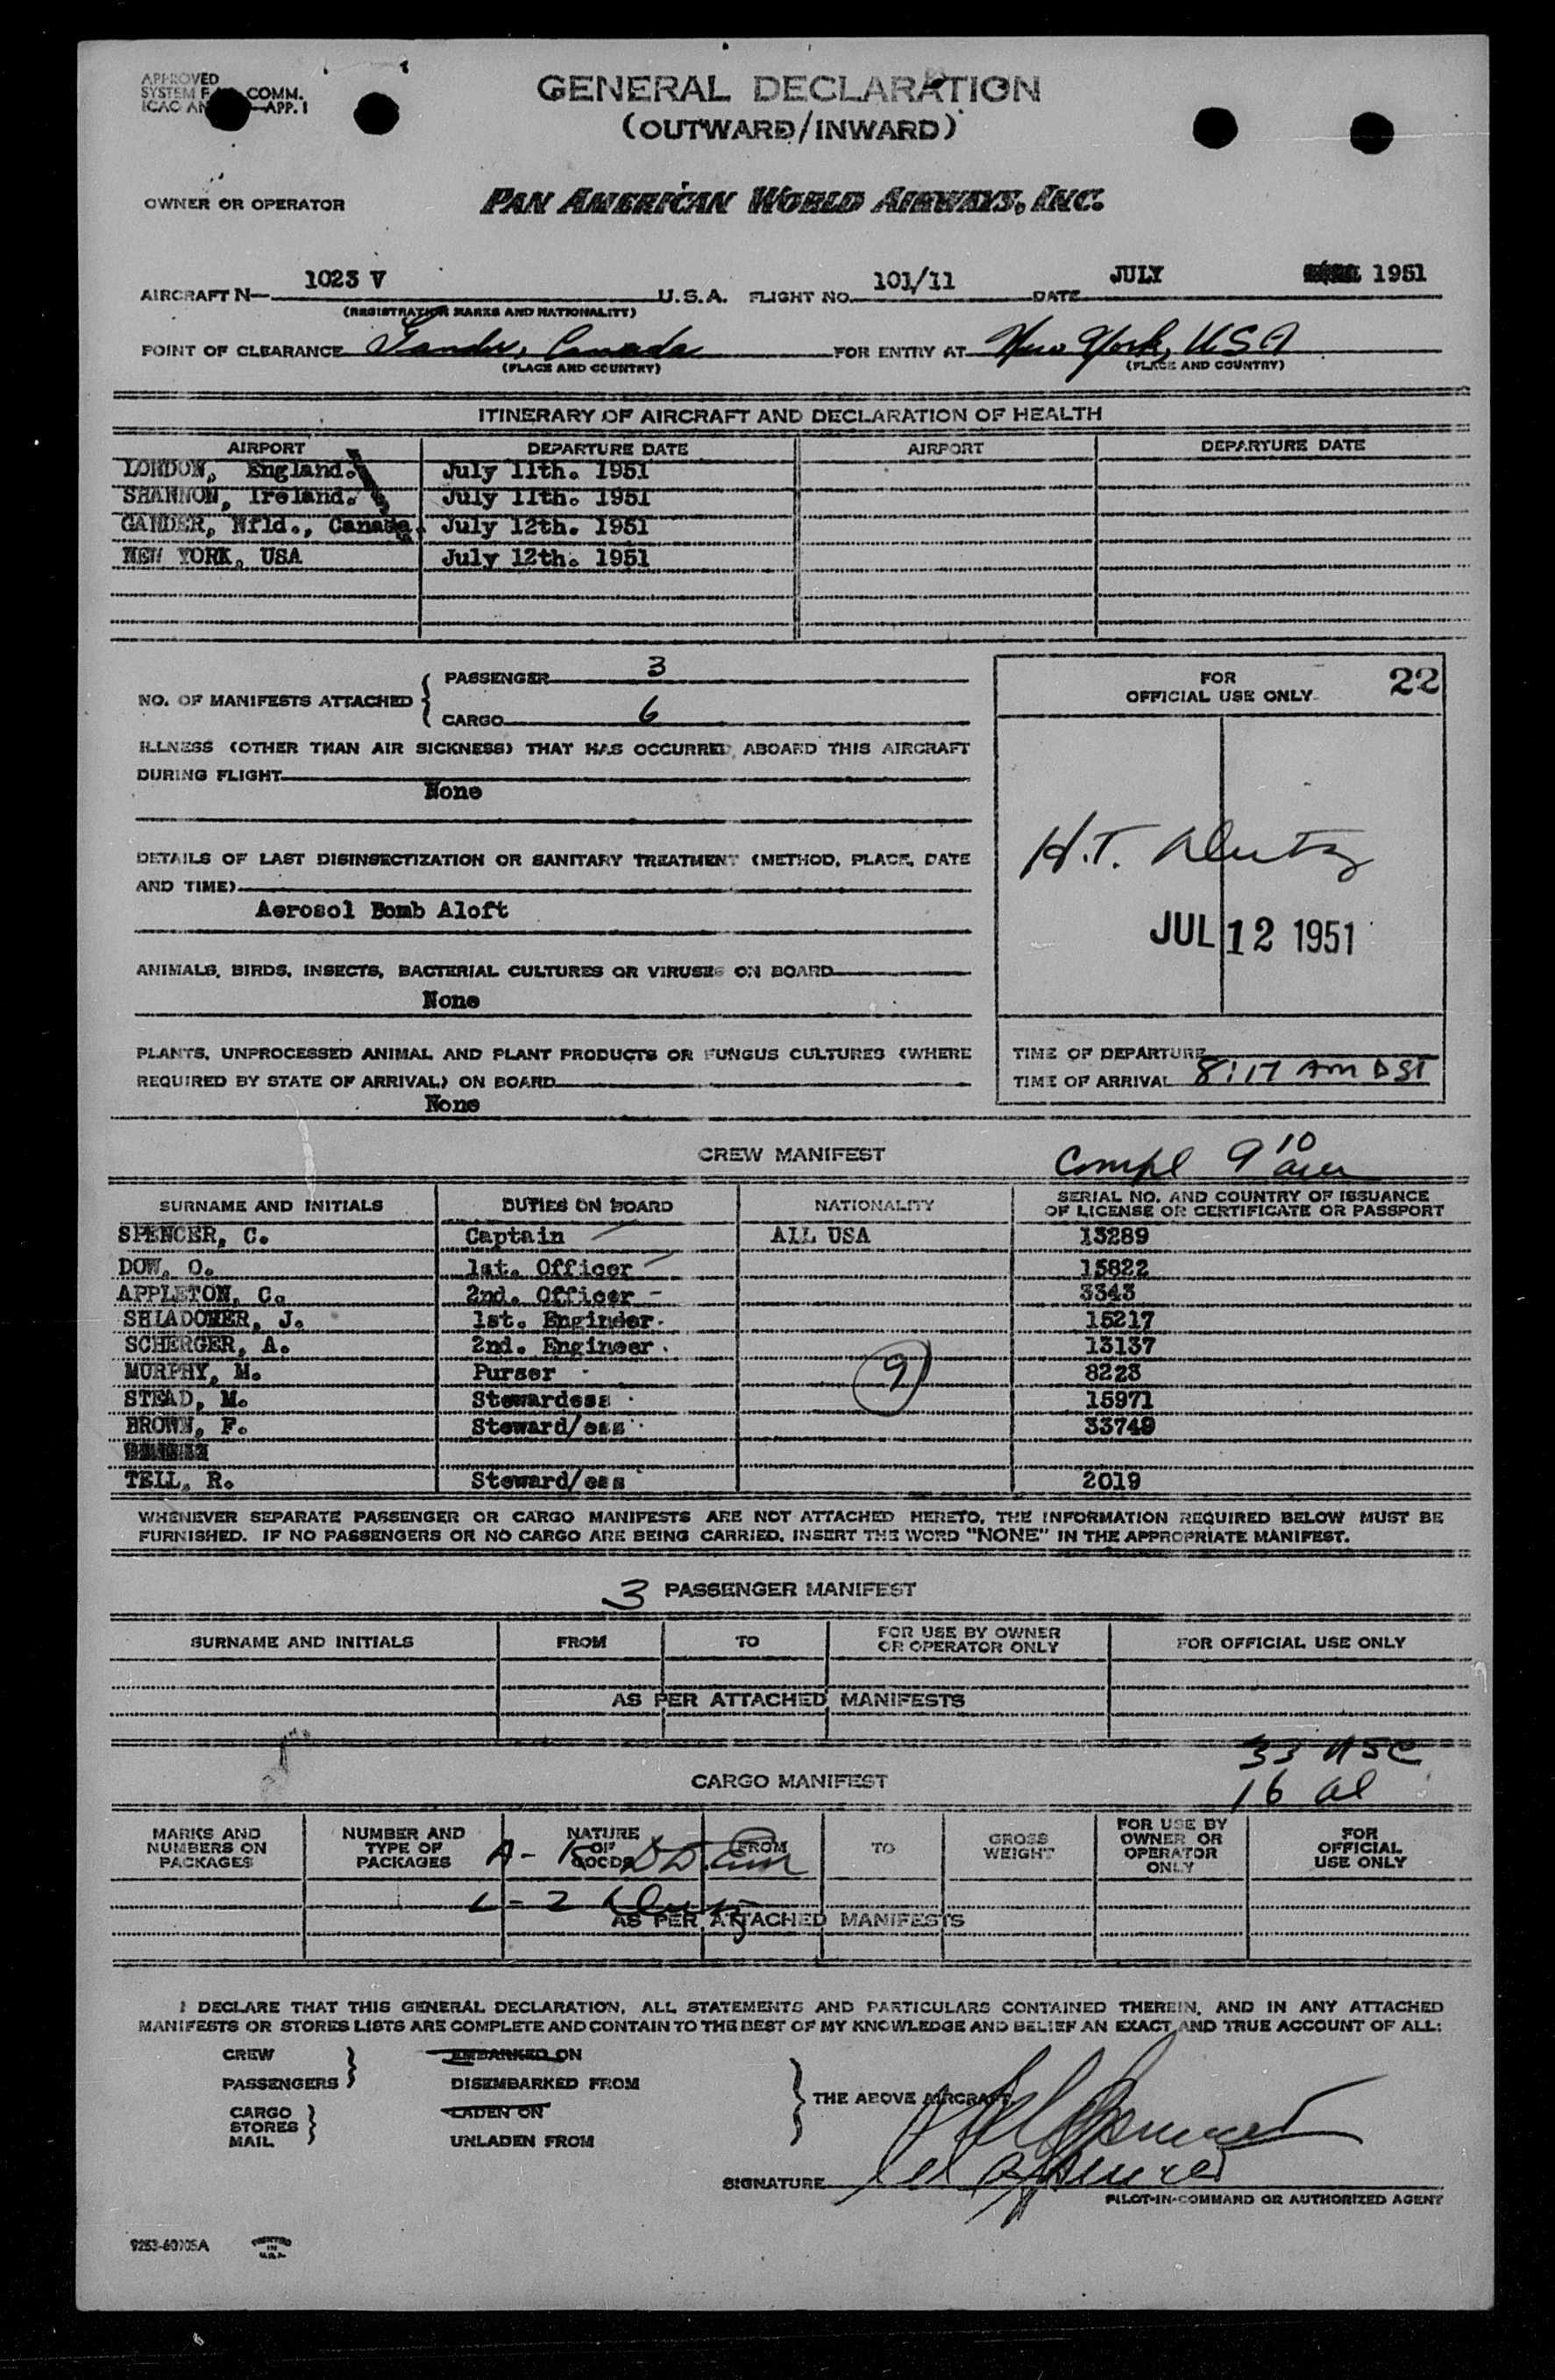 APPROVED
SYSTEM COMM.
ICAO APP. 1
GENERAL DECLARATION
(OUTWARD/INWARD)
OWNER OR OPERATOR PAN AMERICAN WORLD AIRWAYS, INC.
AIRCRAFT N— 1023 V U.S.A. FLIGHT NO. 101/11 DATE JULY 1951
(REGISTRATION MARKS AND NATIONALITY)
POINT OF CLEARANCE Gander, Canada FOR ENTRY AT New York, USA
(PLACE AND COUNTRY) (PLACE AND COUNTRY)
ITINERARY OF AIRCRAFT AND DECLARATION OF HEALTH
AIRPORT DEPARTURE DATE AIRPORT DEPARTURE DATE
LONDON, England. July 11th. 1951
SHANNON, Ireland. July 11th. 1951
GANDER, Nfld., Canada. July 12th. 1951
NEW YORK, USA July 12th. 1951
NO. OF MANIFESTS ATTACHED { PASSENGER 3
CARGO 6
FOR
OFFICIAL USE ONLY 22
ILLNESS (OTHER THAN AIR SICKNESS) THAT HAS OCCURRED ABOARD THIS AIRCRAFT
DURING FLIGHT
None
DETAILS OF LAST DISINSECTIZATION OR SANITARY TREATMENT (METHOD, PLACE, DATE
AND TIME)
Aerosol Bomb Aloft
H.T.
JUL 12 1951
ANIMALS, BIRDS, INSECTS, BACTERIAL CULTURES OR VIRUSES ON BOARD
None
PLANTS, UNPROCESSED ANIMAL AND PLANT PRODUCTS OR FUNGUS CULTURES (WHERE
REQUIRED BY STATE OF ARRIVAL) ON BOARD
None
TIME OF DEPARTURE
TIME OF ARRIVAL 8:17 AM DST
CREW MANIFEST
Compl 9 10 am
SURNAME AND INITIALS DUTIES ON BOARD NATIONALITY SERIAL NO. AND COUNTRY OF ISSUANCE
OF LICENSE OR CERTIFICATE OR PASSPORT
SPENCER, C. Captain ALL USA 13289
DOW, O. 1st. Officer 15822
APPLETON, C. 2nd. Officer 3343
SHLADOMER, J. 1st. Engineer 15217
SCHERGER, A. 2nd. Engineer 13137
MURPHY, M. Purser 9 8223
STEAD, M. Stewardess 15971
BROWN, F. Steward/ess 33749
TELL, R. Steward/ess 2019
WHENEVER SEPARATE PASSENGER OR CARGO MANIFESTS ARE NOT ATTACHED HERETO, THE INFORMATION REQUIRED BELOW MUST BE
FURNISHED. IF NO PASSENGERS OR NO CARGO ARE BEING CARRIED, INSERT THE WORD "NONE" IN THE APPROPRIATE MANIFEST.
3 PASSENGER MANIFEST
SURNAME AND INITIALS FROM TO FOR USE BY OWNER
OR OPERATOR ONLY FOR OFFICIAL USE ONLY
AS PER ATTACHED MANIFESTS
33 USC
16 al
CARGO MANIFEST
MARKS AND
NUMBERS ON
PACKAGES
NUMBER AND
TYPE OF
PACKAGES
NATURE
OF
GOODS
FROM
TO
GROSS
WEIGHT
FOR USE BY
OWNER OR
OPERATOR
ONLY
FOR
OFFICIAL
USE ONLY
AS PER ATTACHED MANIFESTS
I DECLARE THAT THIS GENERAL DECLARATION, ALL STATEMENTS AND PARTICULARS CONTAINED THEREIN, AND IN ANY ATTACHED
MANIFESTS OR STORES LISTS ARE COMPLETE AND CONTAIN TO THE BEST OF MY KNOWLEDGE AND BELIEF AN EXACT AND TRUE ACCOUNT OF ALL:
CREW EMBARKED ON
PASSENGERS DISEMBARKED FROM
THE ABOVE AIRCRAFT
CARGO LADEN ON
STORES
MAIL UNLADEN FROM
SIGNATURE
PILOT-IN-COMMAND OR AUTHORIZED AGENT
PRINTED
IN
U.S.A.